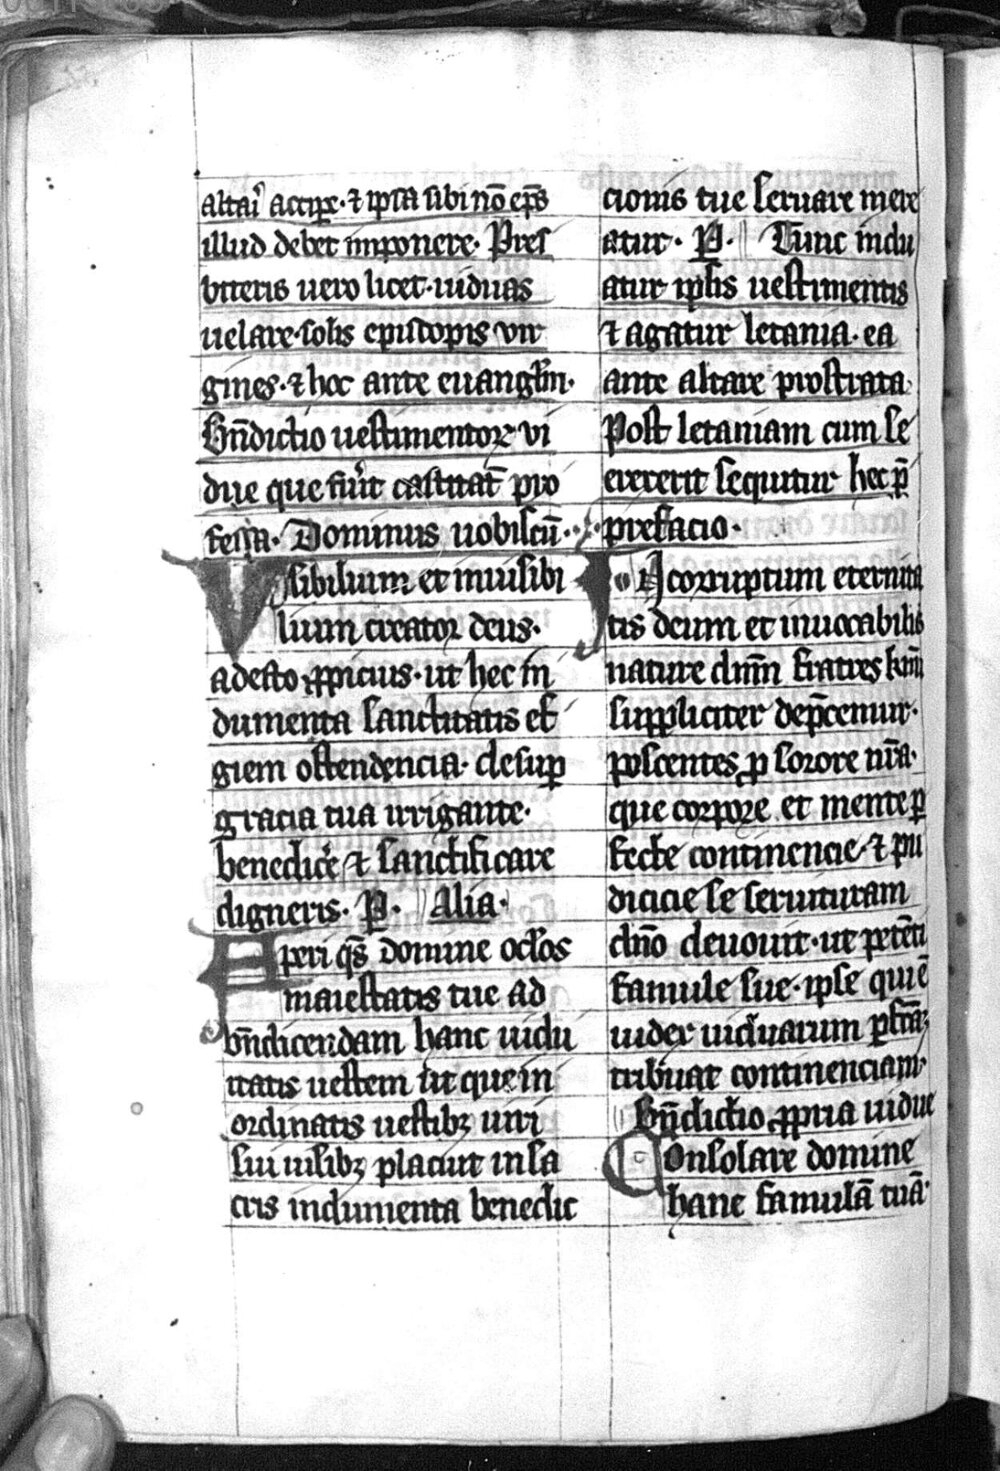 altari accipe· ⁊ ipsa sibi nō ep̄s
illud debet imponere· Pres
biteris uero licet· uiduas
uelare· solis episcopis vir
gines· ⁊ hoc ante euangłm·
Bn̄dictio uestimentoꝝ vi
due que fuīt castitat̄ pro
fessa· Dominus uobiscū··
Visibilium et inuisibi
lium creator deus·
adesto ꝓpicius· ut hec in
dumenta sanctitatis ef
giem ostendencia· desuꝑ
gracia tua irrigante·
benedicē ⁊ sanctificare
digneris· P̄· Alia·
Aperi qs̄ domine oclōs
maiestatis tue ad
bn̄dicendam hanc uidu
itatis uestem ut que in
ordinatis uestibꝫ uiri
sui uisibꝫ placuit in sa
cris indumenta benedic
cionis tue seruare mere
atur· P̄· Tunc indu
atur ipsis uestimentis
⁊ agatur letania· ea
ante altare prostrata·
Post letaniam cum se
erexerit sequitur hec p̄
prefacio·
Incorruptum eternita
tis deum et inuiolabilis
nature dn̄m fratres km̄i
suppliciter dep̄cemur·
poscentes ꝑ sorore nr̄a·
que corpore et mente ꝑ
fecte continencie ⁊ pu
dicicie se seruituram
dn̄o deuouit· ut petēti
famule sue· ipse qui ē
iudex uiduarum
tribuat continenciam·
Bn̄dictio ꝓpria uidue
Consolare domine
hanc famulā tuā·